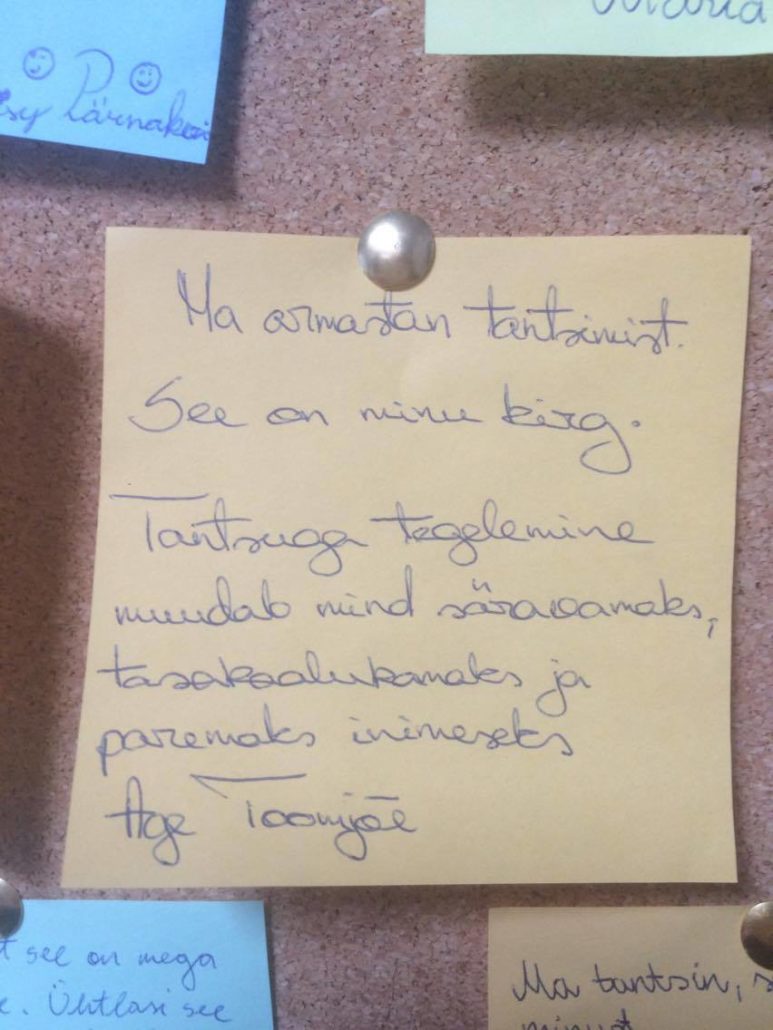 Maria
Pärnakesi
Ma armastan tantsimist.
See on minu kirg.
Tantsuga tegelemine
muudab mind säravamaks,
tasakaalukamaks ja
paremaks inimeseks
Age Toomjõe
see on mega
Ühtlasi see
Ma tantsin,
minust